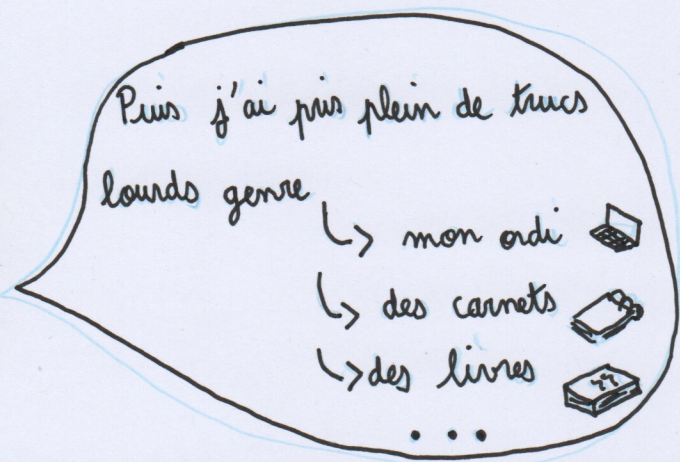 Puis j'ai pris plein de trucs
lourds genre
↳ mon ordi
↳ des carnets
↳ des livres
...